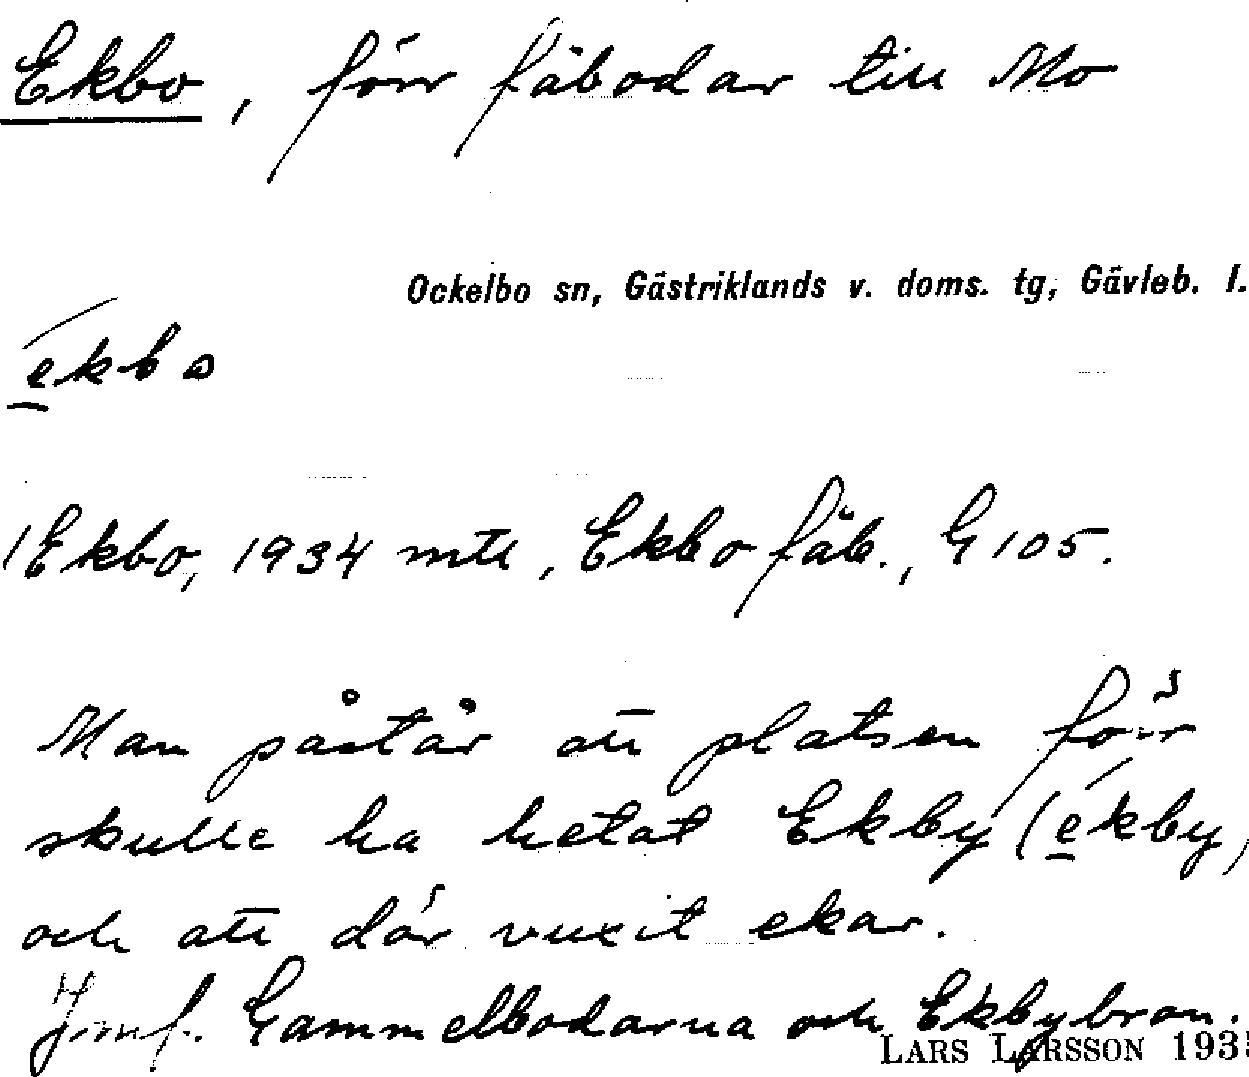 Ekbo, förr fäbodar till Mo
Ockelbo sn, Gästriklands v. doms. tg, Gävleb. l.
ékbo
/Ekbo, 1934 mtl, Ekbo fäb., G 105.
Man påstår att platsen förr
skulle ha hetat Ekby (ékby)
och att där vuxit ekar.
Jmf. Gammelbodarna och Ekbybron.
LARS LARSSON 193